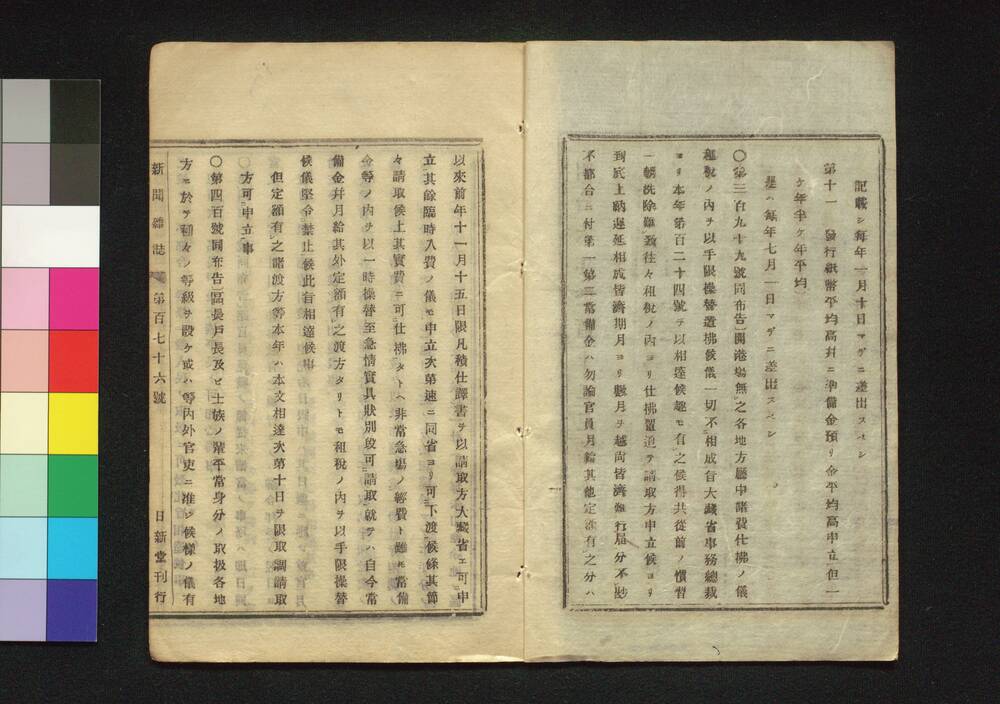 記載シ毎年一月十日マデニ差出スベシ
第十一 發行紙幣平均高幷ニ準備金預リ金平均高申立但一
ケ年半ケ年平均
差ハ毎年七月一日マデニ差出スベシ
〇第三百九十九號同布告開港場無之各地方廳中諸費仕拂ノ儀
租稅ノ內ヲ以手限操替遣拂候儀一切不相成旨大藏省事務總裁
ヨリ本年第百二十四號ヲ以相達候趣モ有之候得共從前ノ慣習
一朝洗除難致往々租稅ノ內ヨリ仕拂置追テ請取方申立候ヨリ
到底上納遲延相成皆濟期月ヨリ數月ヲ越尙皆濟難行屆分不尠
不都合ニ付第一第二常備金ハ勿論官員月給其他定額有之分ハ
以來前年十一月十五日限凡積仕譯書ヲ以請取方大藏省エ可申
立其餘臨時入費ノ儀モ申立次第速ニ同省ヨリ可下渡候條其節
々請取候上其實費ニ可仕拂タトヘ非常急場ノ經費ト雖モ常備
金等ノ內ヲ以一時操替至急情實具狀別段可請取就テハ自今常
備金幷月給其外定額有之渡方タリトモ租稅ノ內ヲ以手限操替
候儀堅令禁止候此旨相達候事
但定額有之諸渡方等本年ハ本文相達次第十日ヲ限取調請取
方可申立事
〇第四百號同布告區長戶長及ビ士族ノ輩平常身分ノ取扱各地
方ニ於テ種々ノ等級ヲ設ケ或ハ等內外官吏ニ准シ候樣ノ儀有
新聞雜誌 第百七十六號 日新堂刊行